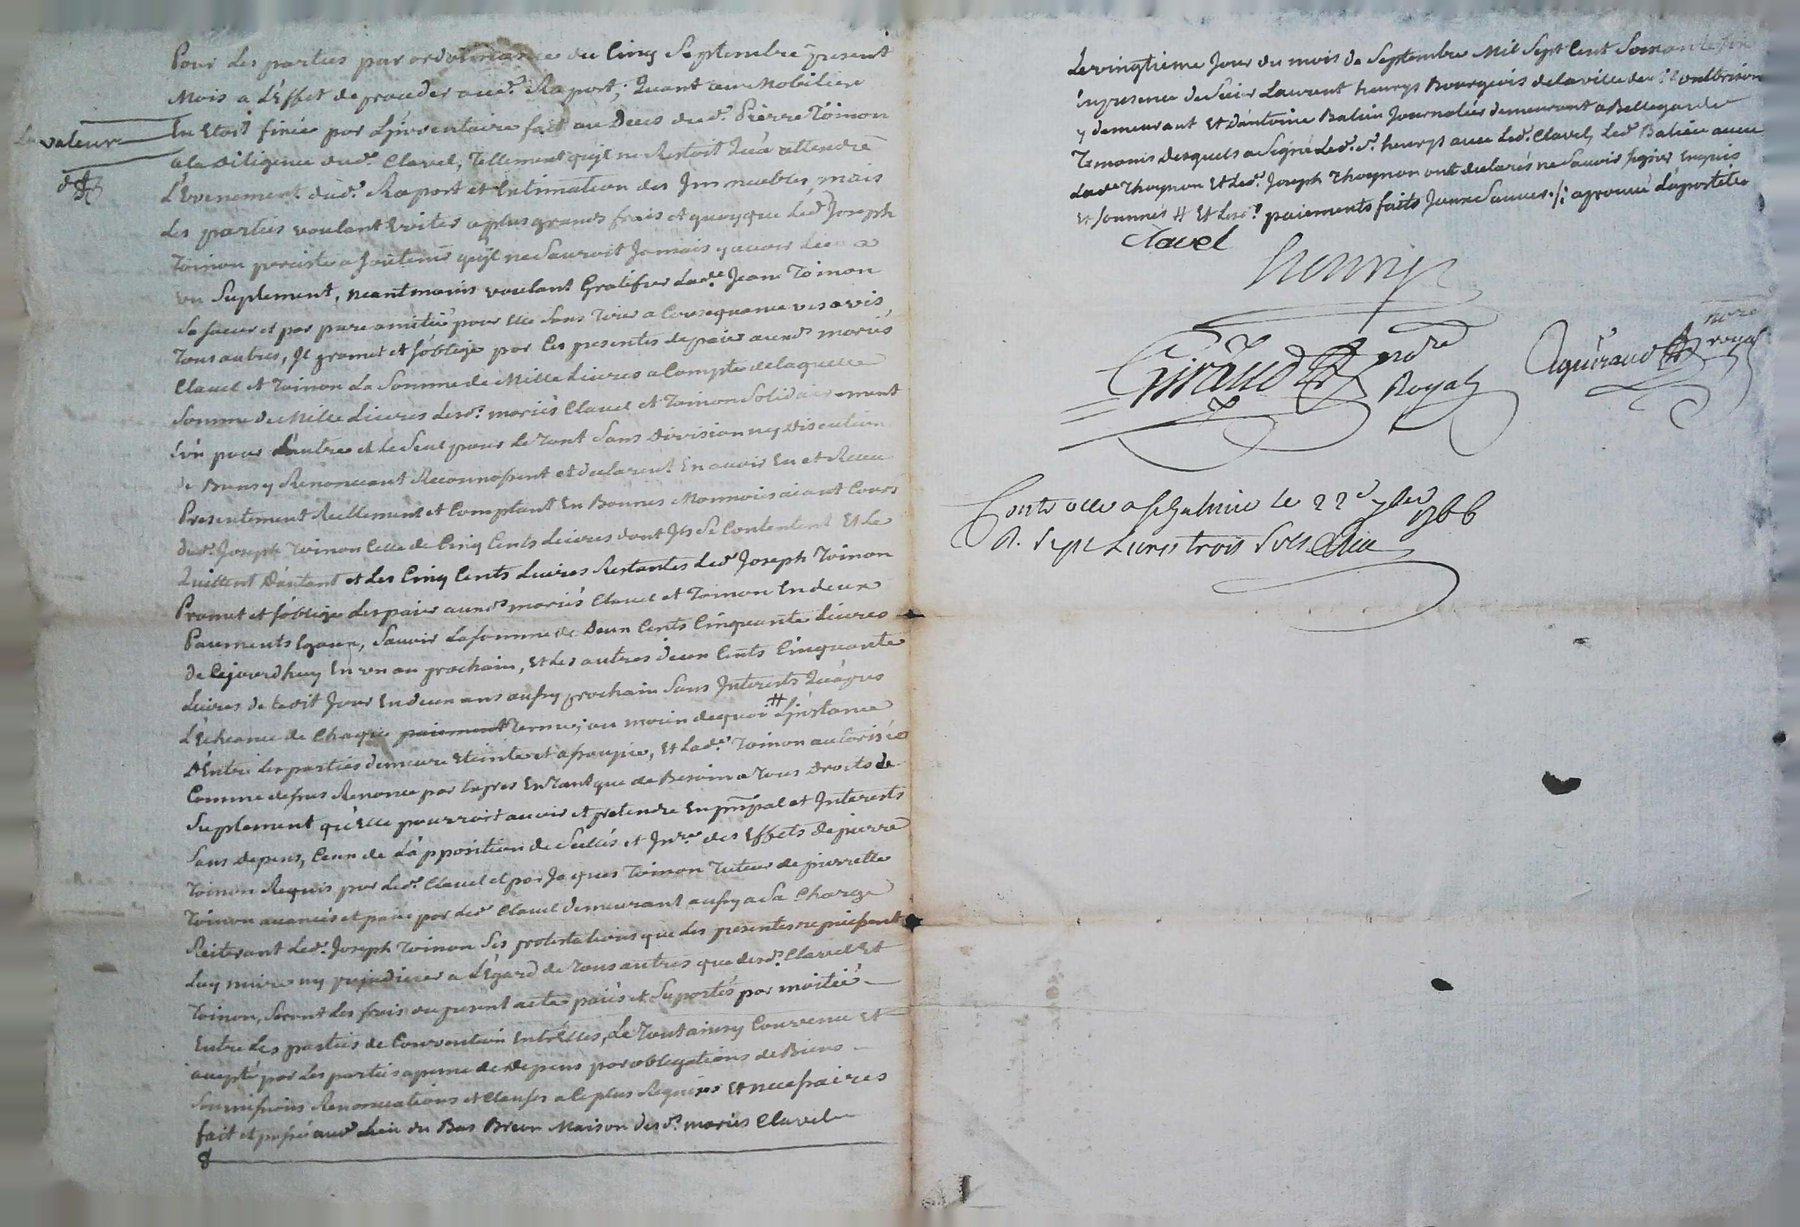 Pour les parties par ordonnance du Cinq Septembre present
Mois a L'Effet de proceder aud.t Raport; Quant au Mobilier
La valeur En Etoit finée par L'inventaire fait au Deces dud.t Pierre Toinon
a la Diligence dud.t Clavel, Tellement qu'jl ne Restoit Qu'a attendre
L'Evenement dud.t Raport et Estimation des Jmmeubles, mais
Les parties voulant Eviter a plus grands frais et quoyque Led.t Joseph
Toinon persiste a soutenir qu'jl ne Sauroit Jamais y avoir Lieu a
un Suplement, neantmoins voulant Gratifier Lad.te Jeane Toinon
Sa soeur et par pure amitié pour Elle Sans Tirer a Consequance vis a vis
Tous autres, Jl promet et s'oblige par Ces presentes de paier auxd.s mariés
Clavel et Toinon La Somme de Mille Livres a Compte de laquelle
Somme de Mille Livres Lesd.s mariés Clavel et Toinon Solidairement
L'un pour L'autre et Le Seul pour Le Tout Sans Division ny Discution
de Biens y Renoncant Reconnoissent et declarent En avoir Eu et Receu
Presentement Reellement et Comptant En Bonnes Monnois aiant Cours
dud.t Joseph Toinon Celle de Cinq Cents Livres dont Jls Se Contentent Et Le
Quittent D'autant et Les Cinq Cents Livres Restantes Led.t Joseph Toinon
Promet et s'oblige Les paier auxd.s mariés Clavel et Toinon En deux
Paiements Egaux, Savoir La somme de Deux Cents Cinquante Livres
de Cejourd'huy En un an prochain, Et Les autres deux Cents Cinquante
Livres de Ledit Jour En deux ans aussy prochain Sans Interests Qu'apres
L'Echeance de Chaque paiement Terme; au moien de quoi # L'jnstance
D'Entre Les parties demeure Eteinte et assoupie, Et Lad.te Toinon autorisée
Comme dessus Renonce par Expres En Tant que de Besoin a Tous Droits de
Suplement qu'Elle pourroit avoir et pretendre En prnpal et Interests
Sans depens, Ceux de L'apposition de Scellés et Jn.re des Effets de pierre
Toinon Requis par Led.t Clavel et par Jacques Toinon Tuteur de pierrette
Toinon avancés et paiés par Led.t Clavel demeurant aussy a Sa Charge
Reiterant Led.t Joseph Toinon Ses protestations que Les presentes ne puissent
Luy nuire ny prejudicier a L'Egard de Tous autres que desd.s Clavel Et
Toinon, Seront Les frais du present acte paiés et Suportés par moitié
Entre Les parties de Convention Entr'Elles, Le Tout ainsy Convenu Et
accepté par Les parties a peine de depens par obligations de Biens
Soumissions Renonciations et Clauses a Ce plus Requises Et necessaires
fait et passé aud.t Lieu du Bas Breux Maison desd.s mariés Clavel
Le vingtieme Jour du mois de Septembre Mil Sept Cent Soixante Six
En presence de Sieur Laurent henrys Bourgeois de la ville de Montbrison
y demeurant Et d'antoine Balieu Journalier demeurant a Bellegarde
Temoins desquels a Signé Led.t S.r henrys avec Led.t Clavel, Led.t Balieu avec
Lad.te Thoynon Et Led.t Joseph Thoynon ont declarés ne Savoir Signer Enquis
Et Sommés # Et Lesd.s paiements faits
aprouvé L'apostille
Clavel
henrys
Giraud no.re
Royal
Aguiraud
no.re
royal
Controllé a le 22e 7bre
1766
R. Sept Livres trois Sols